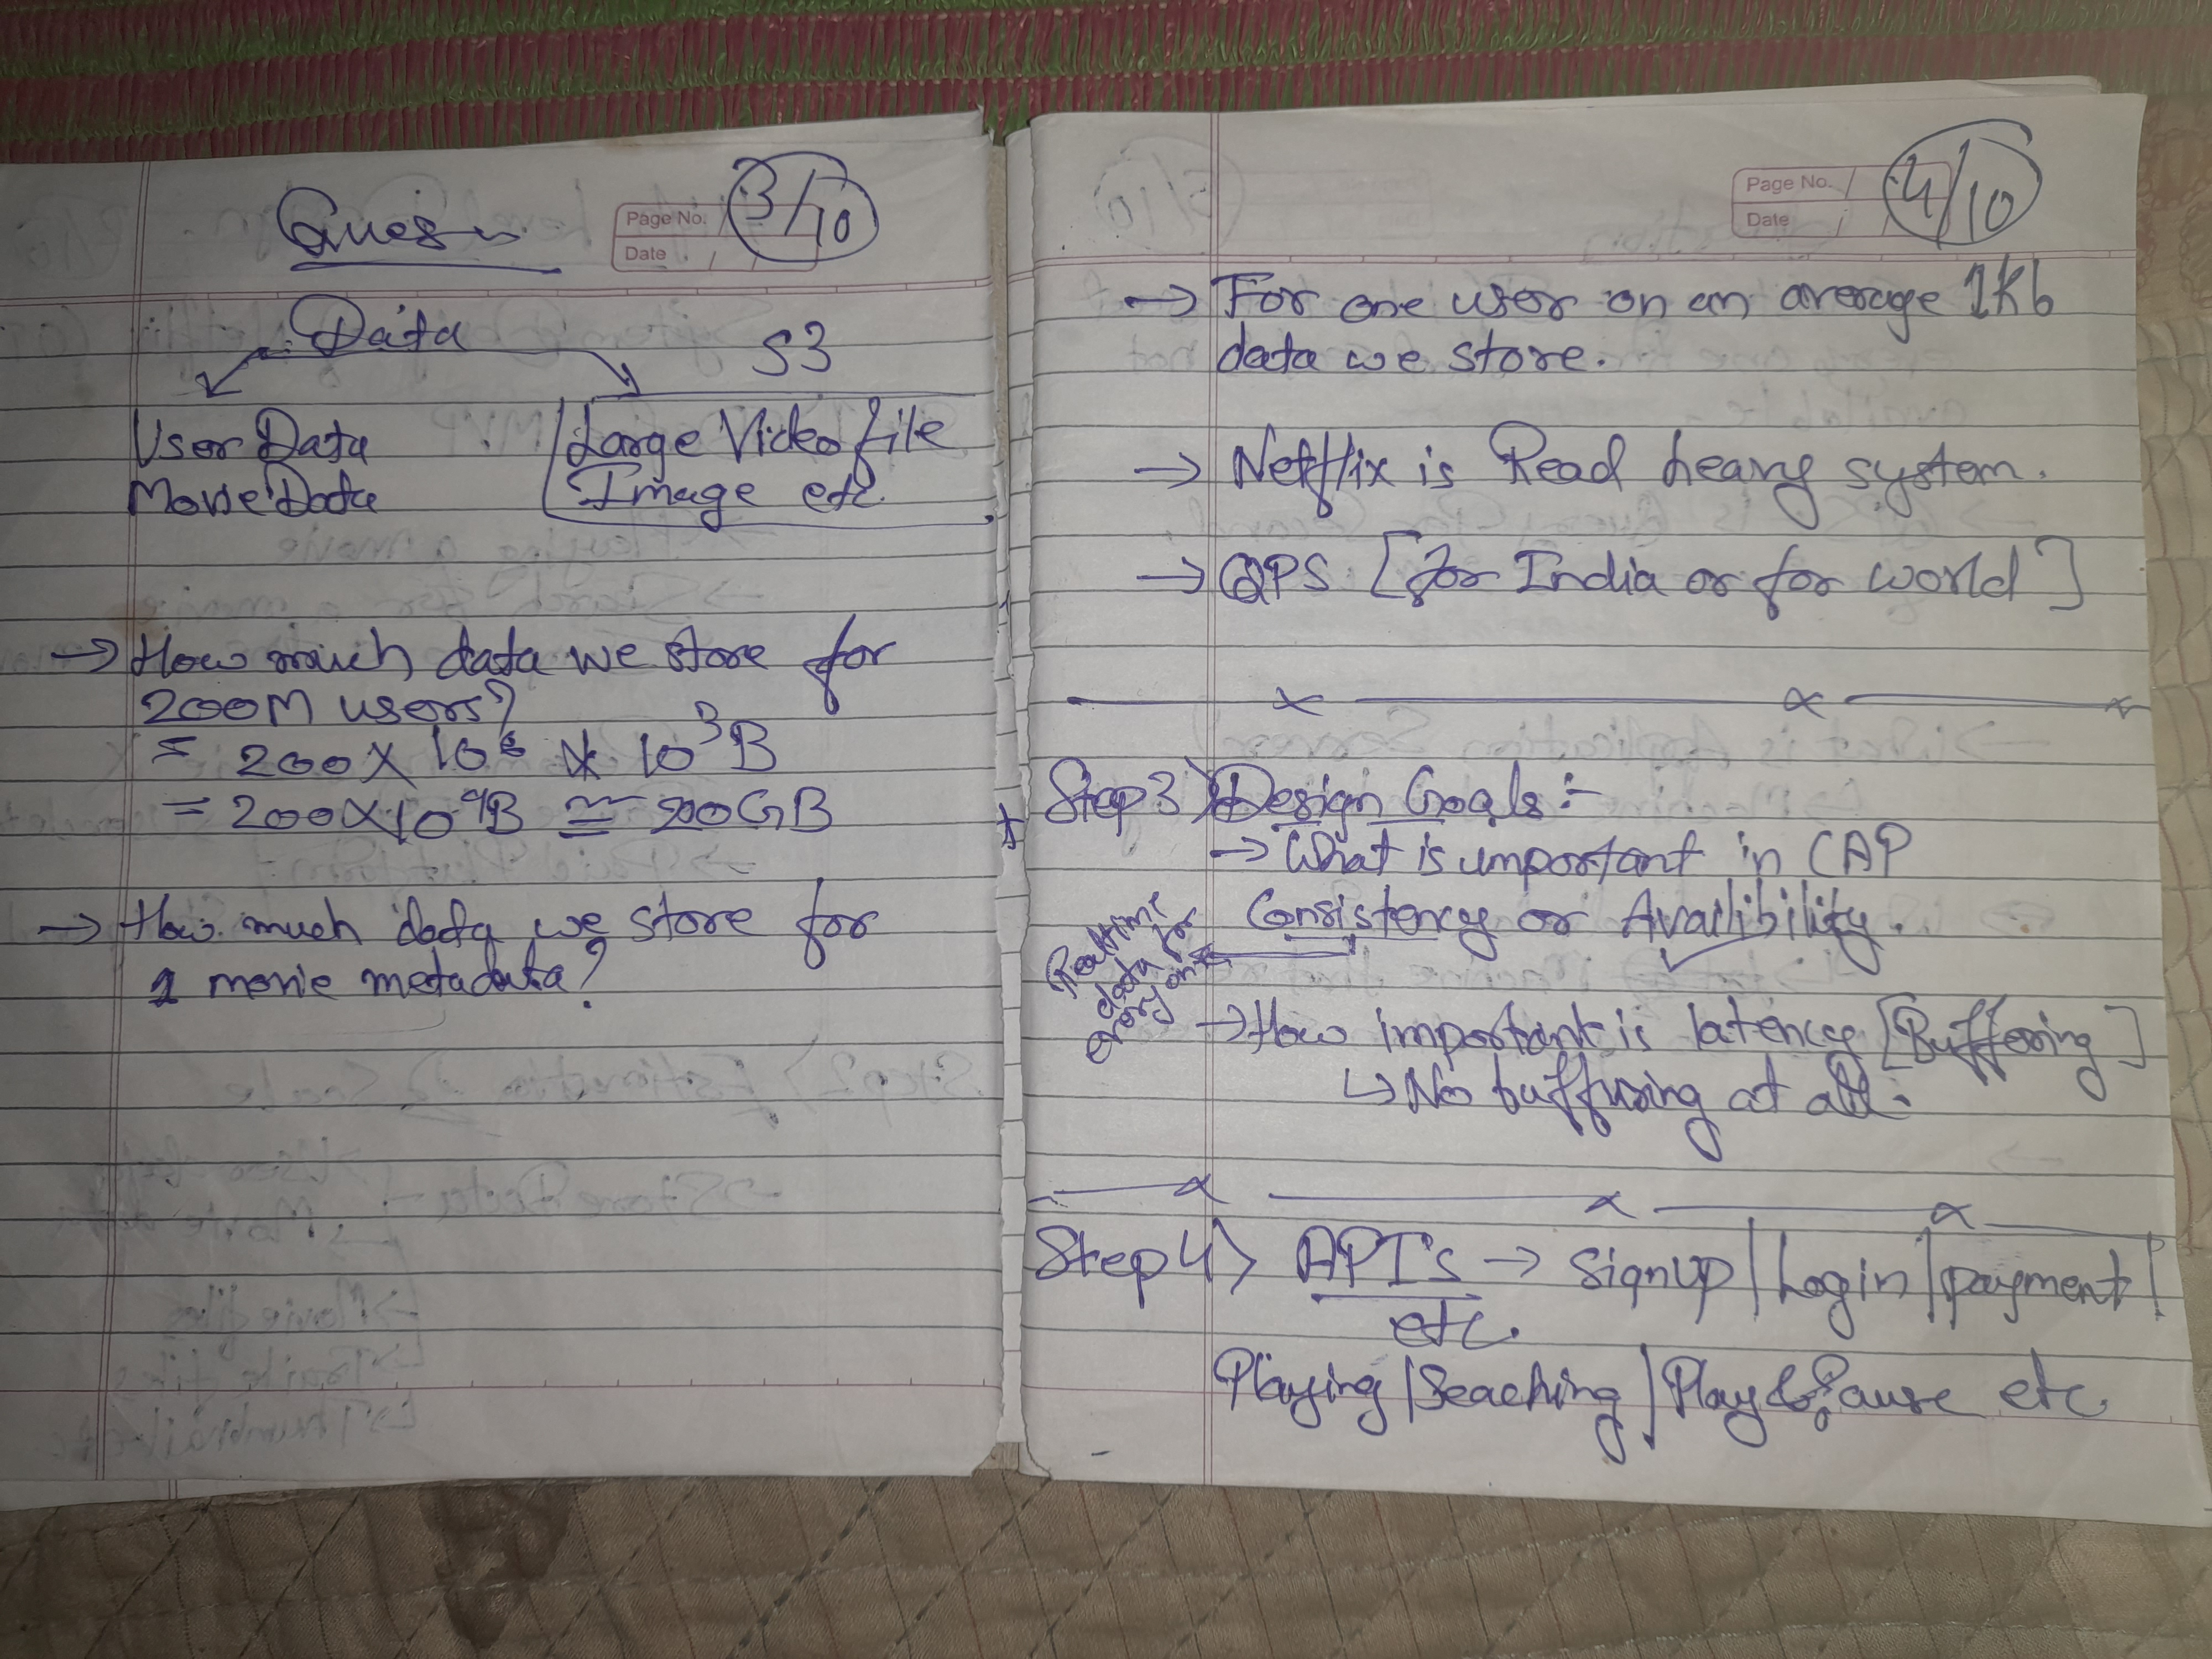 Page No.
Date / /
3/10
Ques
Data
S3
User Data
Movie Data
Large Video file
Image etc.
→ How much data we store for
200M users?
= 200 X 10⁶ X 10³B
= 200X10⁹B = 200GB
→ How much data we store for
1 movie metadata?
Page No.
Date / /
4/10
→ For one user on an average 1Kb
data we store.
→ Netflix is Read heavy system.
→ QPS [for India or for world]
x x x
Step3 > Design Goals:-
→ What is important in CAP
Consistency or Availibility.
→ How important is latency [Buffering]
↳ No buffering at all.
x x x
Step4> API's → SignUp | Login | Payment |
etc.
Playing | Seaching | Play & Pause etc.